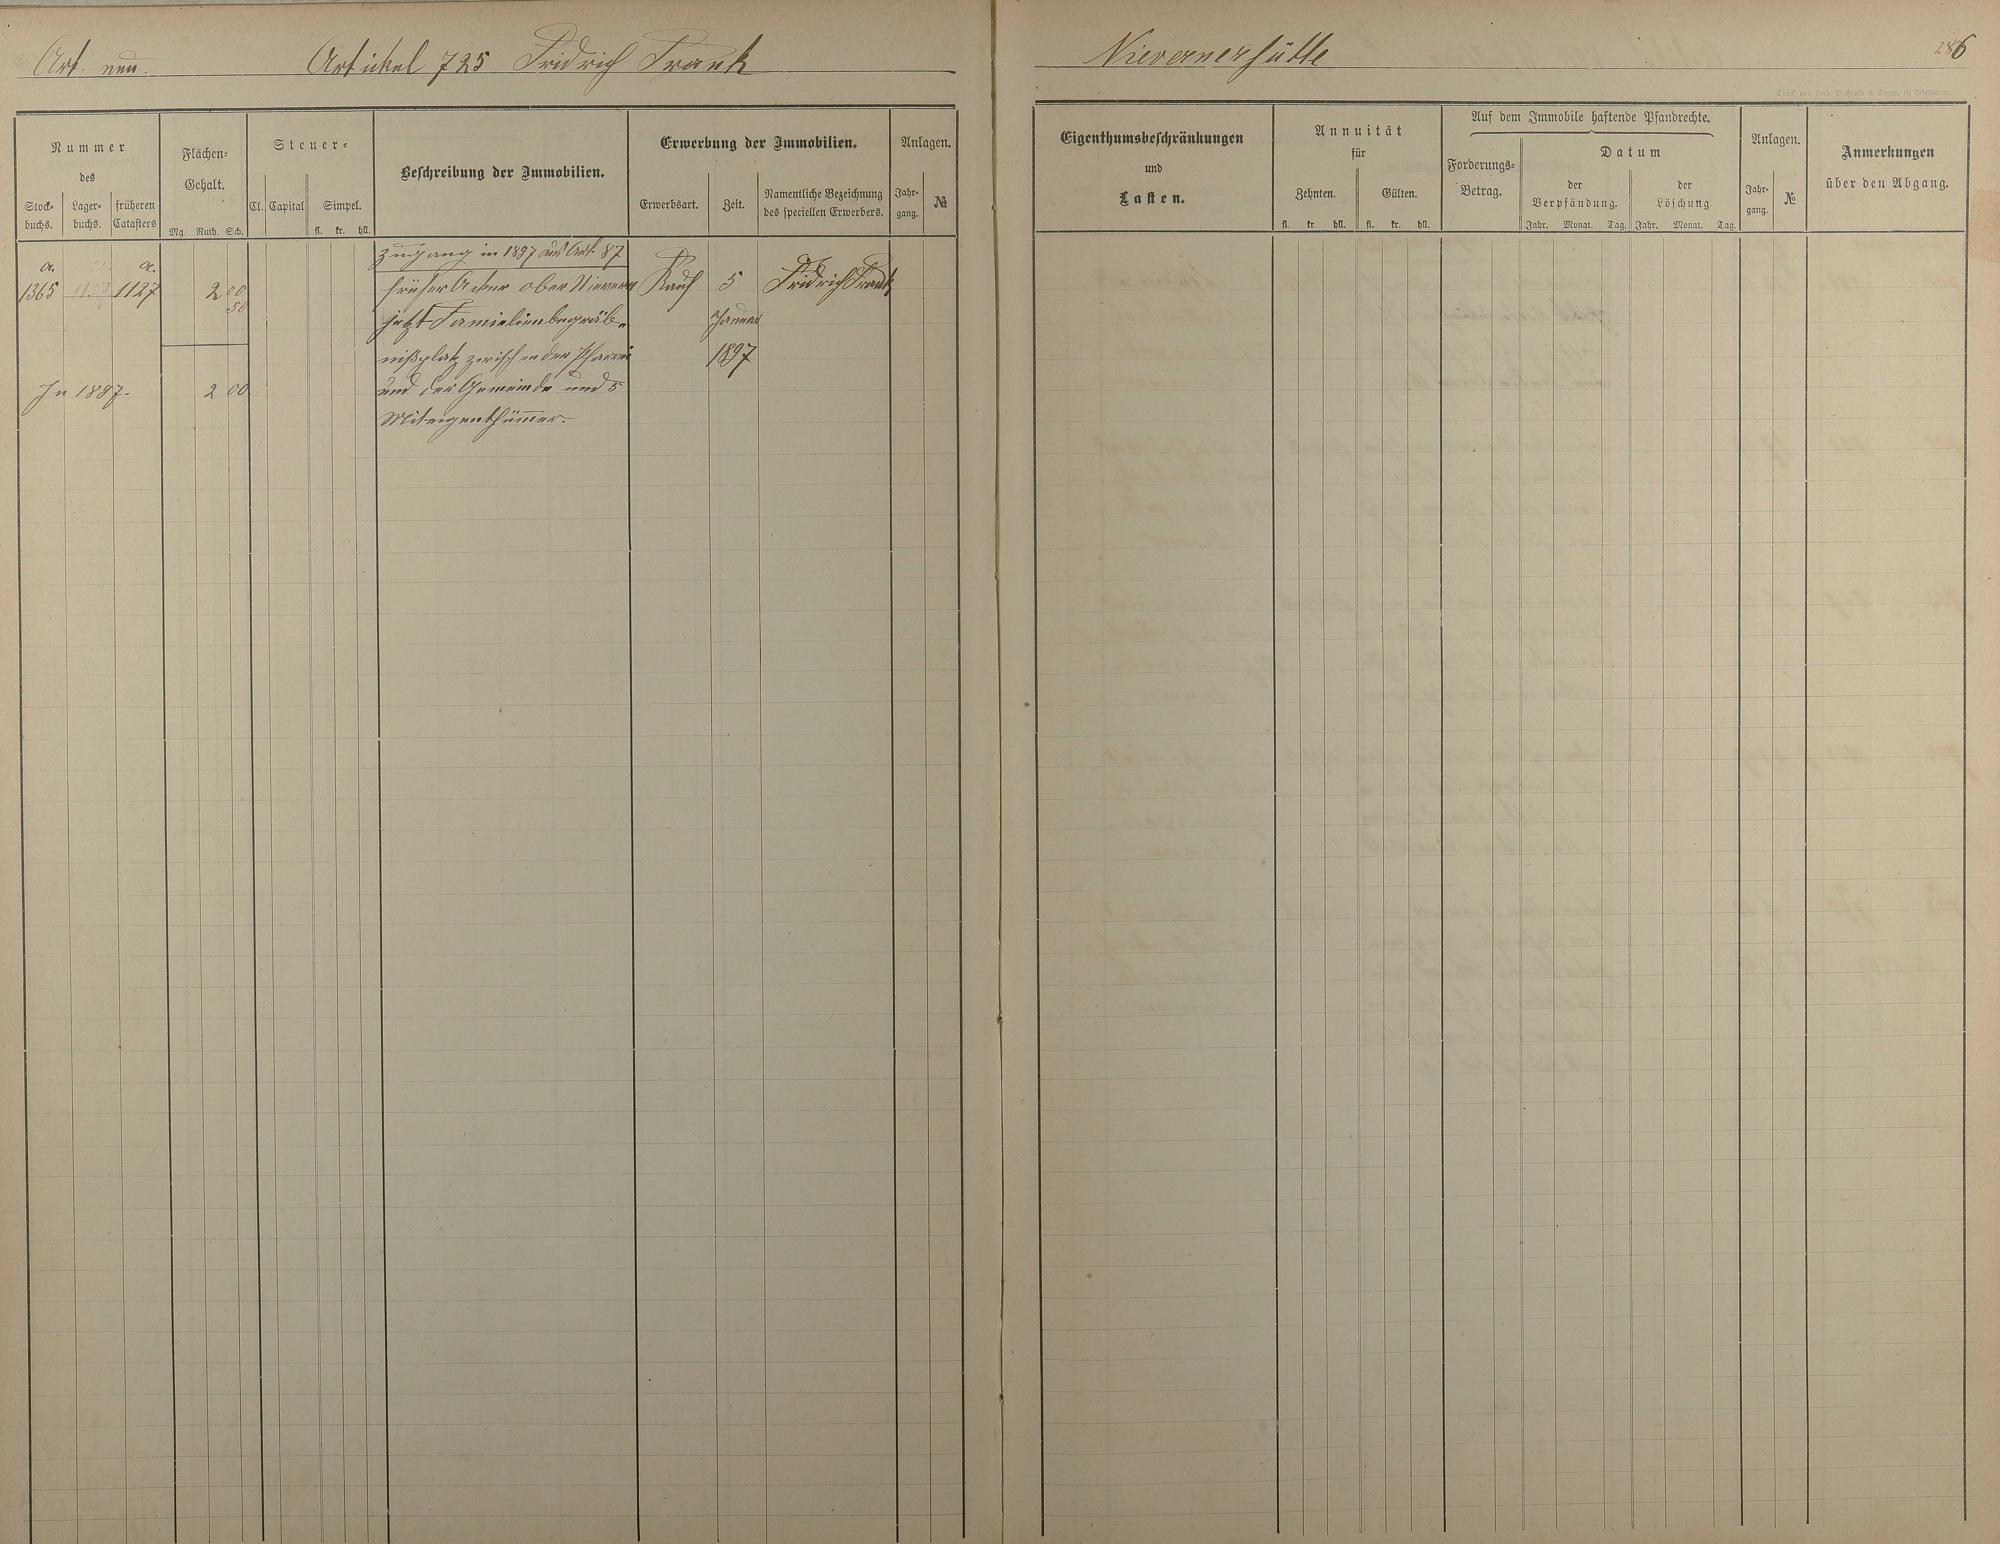 Art. neu. Artickel 725 Fridrich Frank
Nummer
des
Stock-
buchs.
Lager-
buchs.
früheren
Catasters
Flächen-
Gehalt.
Mg. Ruth. Sch.
Steuer-
Cl. Capital Simpel.
fl. kr. hll.
Beschreibung der Immobilien.
Erwerbung der Immobilien.
Erwerbsart.
Zeit.
Namentliche Bezeichnung
des speciellen Erwerbers.
Anlagen.
Jahr-
gang.
№
Zugang in 1897 aus Art. 87
a. a.
1365 1127 2 00 früher Acker ober Nievern Kauf 5 Fridrich Frank
50
jetzt Familienbegräb- Januar
nißplatz zwischen der Pfarrei 1897
In 1897. 2 00 und der Gemeinde und 5
Miteigenthümer.
Nievernerhütte
286
Druck von Carl Bechtold & Comp. in Wiesbaden.
Eigenthumsbeschränkungen
und
Lasten.
Annuität
für
Zehnten. Gülten.
fl. kr. hll. fl. kr. hll.
Auf dem Immobile haftende Pfandrechte.
Forderungs-
Betrag.
Datum
der
Verpfändung.
Jahr. Monat. Tag.
der
Löschung.
Jahr. Monat. Tag.
Anlagen.
Jahr-
gang.
№
Anmerkungen
über den Abgang.